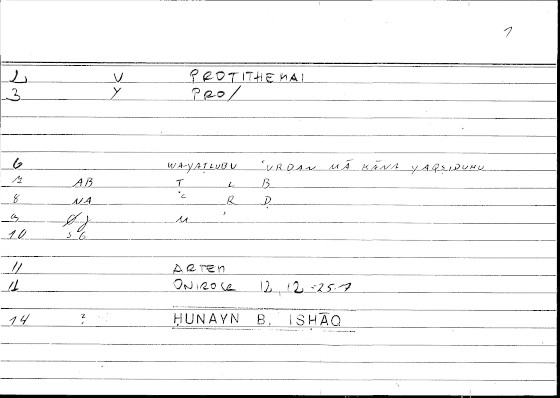 1
2 V PROTITHEMAI
3 Y PRO/
6 WA-YAṬLUBU ʿURḌAN MĀ KĀNA YAQṢIDUHU
7 AB T L B
8 NA ʿ R Ḍ
9 M
10
11 ARTEM
11 ONIROCR 12, 12-25.1
14 ? ḤUNAYN B. ISḤĀQ